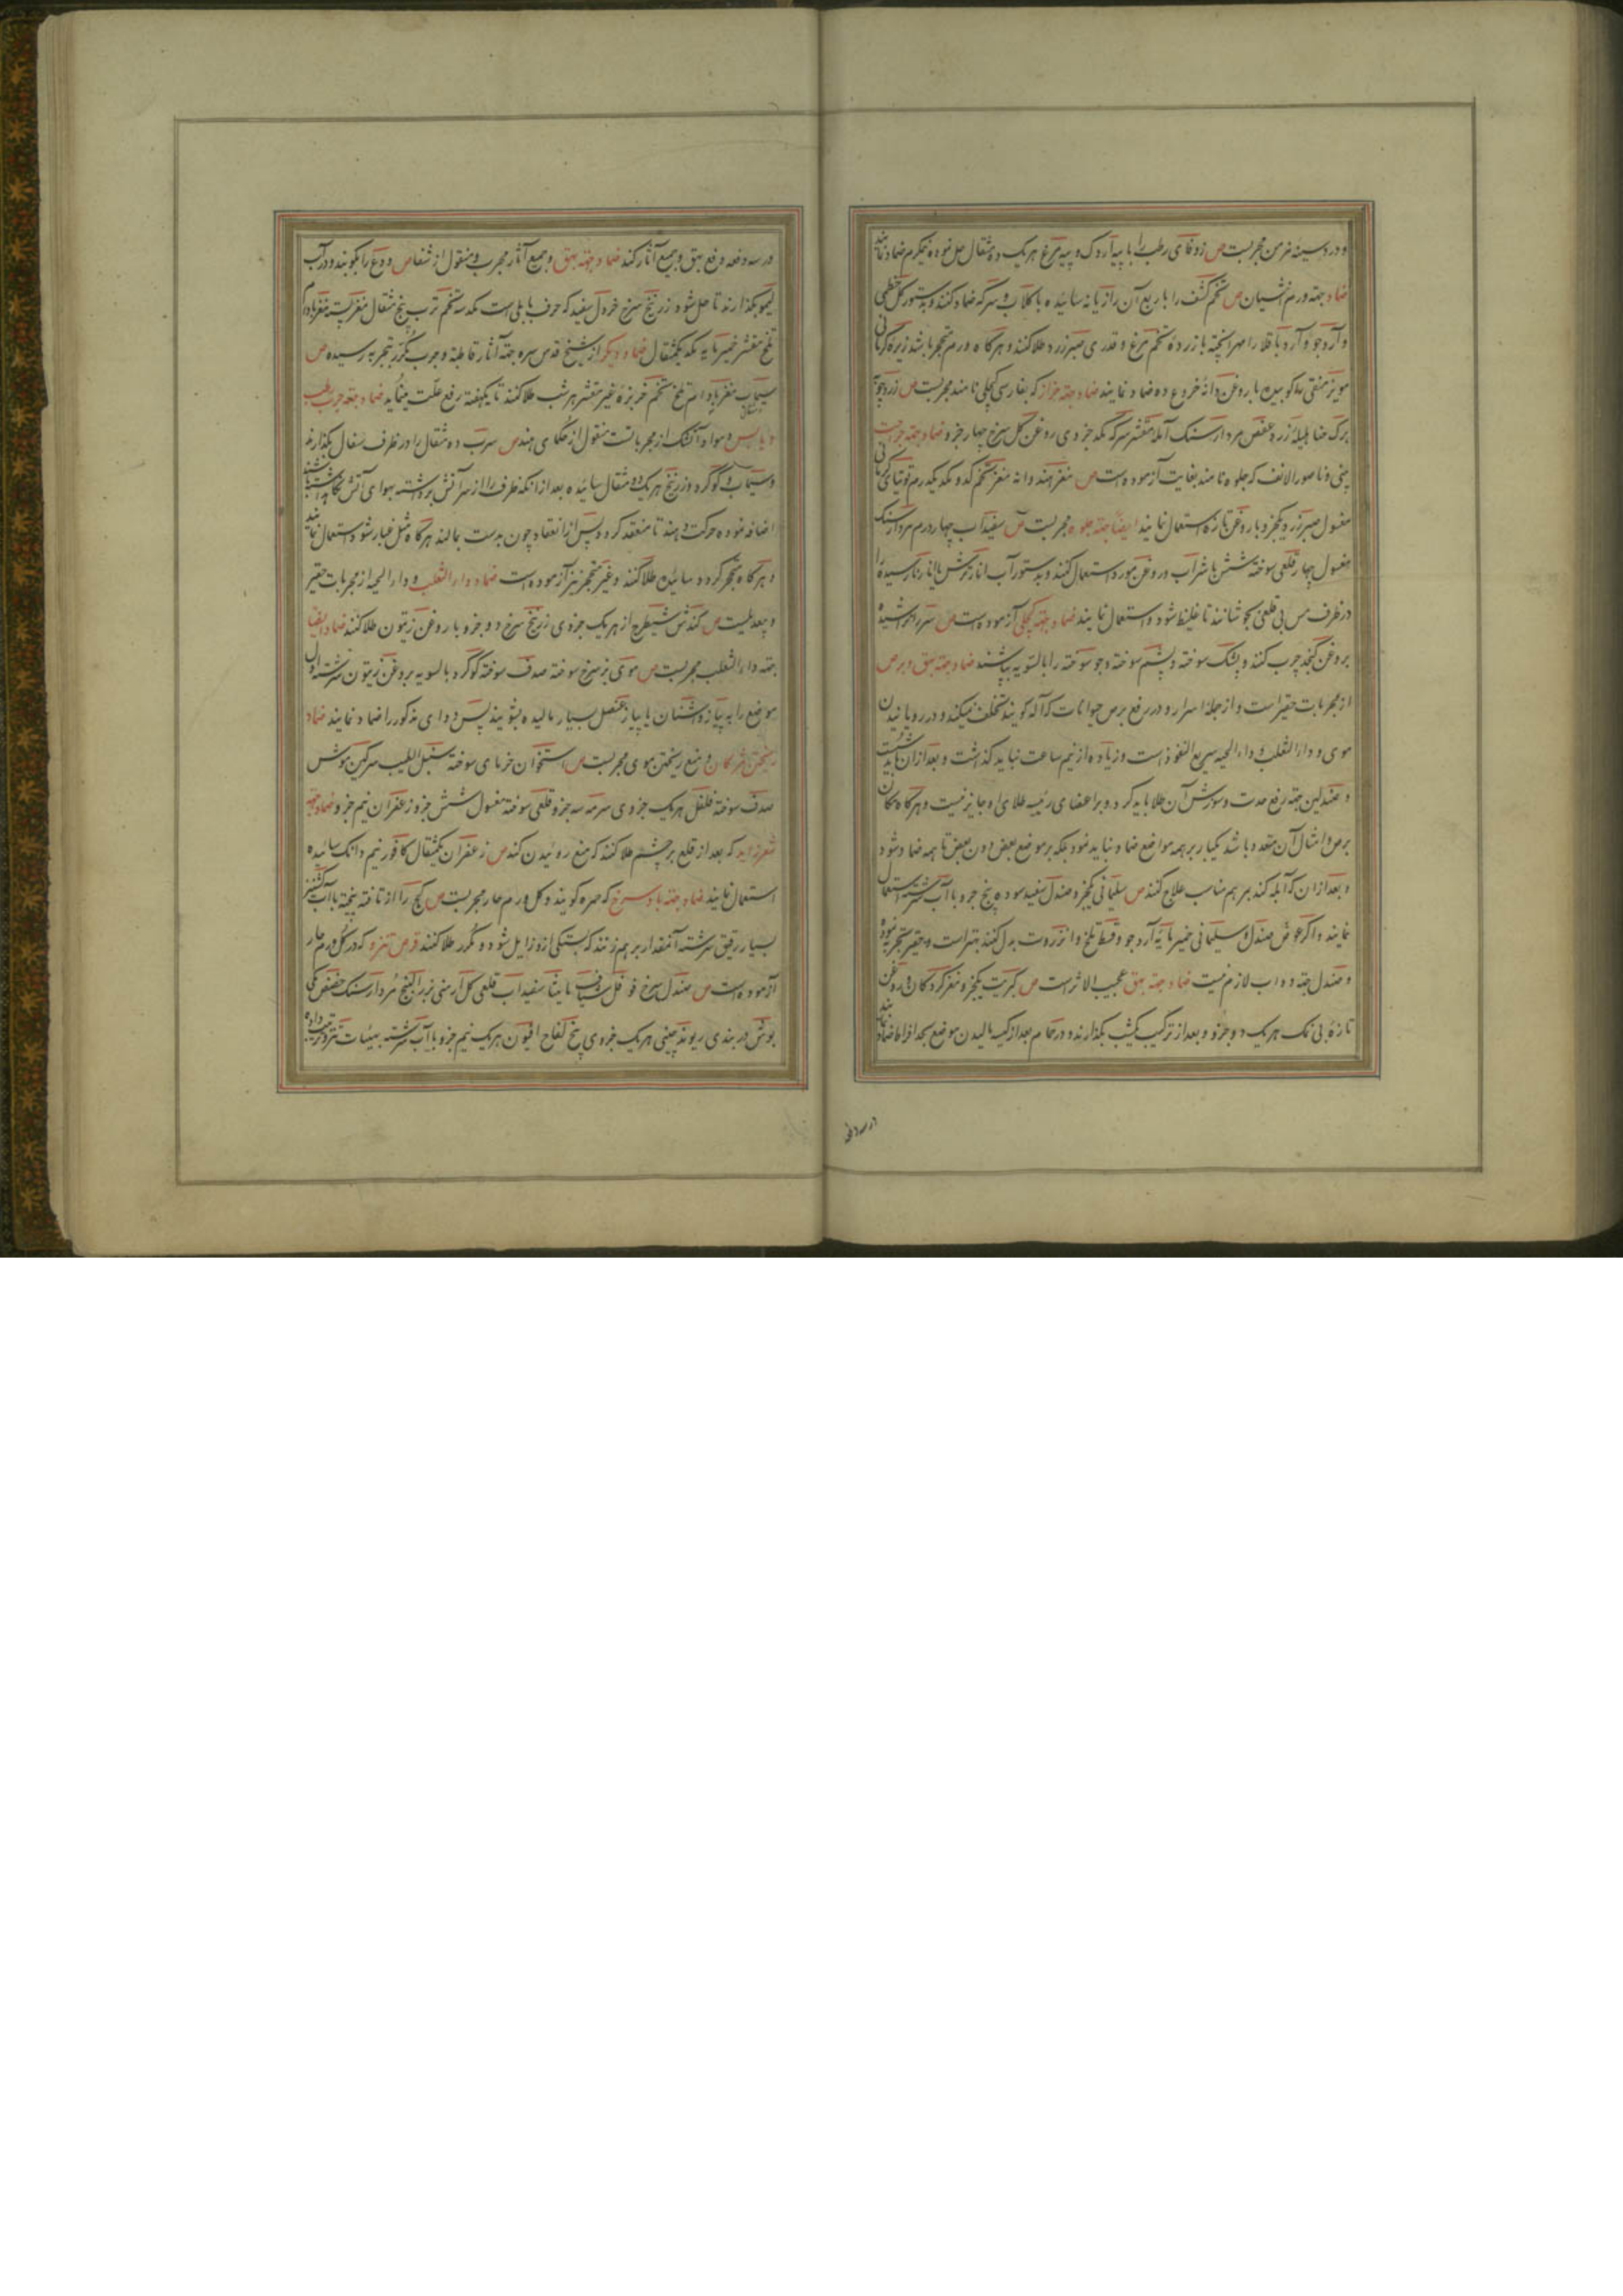 و درد سینه مزمن مجربست ص زوفای رطب را با پیه اردک و پیه مرغ هر یک ده مثقال حل نموده نیمکرم ضماد نمایند
ضماد جهته ورم انثیان ص تخم کشف را با ربع آن رازیانه سائیده با کلاب و سرکه ضماد کنند و بدستور کل خطمی
و آرد جو و آرد باقلا را مهرا پخته با زرده تخم مرغ و قدری صبر زرد طلا کنند و هرکاه ورم متحجر باشد زیره کرمانی
مویز منقی کوبیده با روغن دانه خروع ده ضماد نمایند ضماد جهته حزاز که بفارسی کچلی نامند مجربست ص زردچوبه
برک حنا هلیله زرد عفص مردارسنک آمله مقشر سرکه مکد جزوی روغن کل سرخ چهار جزو ضماد جهته جراحت
بینی و ناصور الانف که جلوه نامند بغایت آزموده است ص مغز هندوانه مغز تخم کدو مکد یکدرم توتیای کرمانی
مغسول صبر زرد یکجزو با روغن تازه استعمال نمایند ایضا جهته جلوه مجربست ص سفیداب چهار درم مردارسنک
مغسول چهار قلعی سوخته شش با شراب و روغن مورد استعمال کنند و بدستور آب انار ترش یا انار نارسیده را
در ظرف مس بی قلعی بجوشانند تا غلیظ شود و استعمال نمایند ضماد جهته کچلی آزموده است ص سر را تراشیده
بروغن کنجد چرب کنند و پشک سوخته و پشم سوخته و جو سوخته را بالسویه بپاشند ضماد جهته بهق و برص
از مجربات حقیر است و از جمله اسرار و در رفع برص حیوانات که آله کویند تخلف نمیکند و در رویانیدن
موی و داء الثعلب و داء الحیه سریع النفوذ است و زیاده از نیم ساعت نباید کذاشت و بعد از آن باید شست
و صندلین جهته رفع حدت و سوزش آن طلا باید کرد و بر اعضای رئیسه طلای او جایز نیست و هرکاه مکان
برص و امثال آن متعدد باشد یکبار بر همه مواضع ضماد نباید نمود بلکه بر موضع بعض دون بعض تا همه ضماد شود
و بعد از آن که آبله کند بمرهم مناسب علاج کنند ص سلیمانی یکجزو صندل سفید سوده پنج جزو با آب سرشته استعمال
نمایند و اکر عوض صندل و سلیمانی خمیرمایه آرد جو و قسط تلخ و انزروت بدل کنند بهتر است و حقیر تجربه نموده
و صندل جهته دواب لازم نیست ضماد جهته بهق عجیب الاثر است ص کبریت یکجزو مغز کردکان و روغن
تازه بی نمک هر یک دو جزو و بعد از ترکیب یکشب بکذارند و در حمام بعد از کیسه مالیدن موضع بحد افراط ضماد نمایند
در سه دفعه
در سه دفعه رفع بهق و جمیع آثار کند ضماد جهته بهق و جمیع آثار مجرب و منقول از شفا ص ودع را بکوبند و در آب
لیمو بکذارند تا حل شود زرنیخ سرخ خردل سفید که حرف بابلی است مکد سه تخم ترب پنج مثقال مغز پسته مغز بادام
تلخ مقشر خمیرمایه مکد یکمثقال ضماد دیکر از شیخ قدس سره جهته آثار قاطبة و جرب مکرر بتجربه رسیده ص
سیماب مغز بادام تلخ تخم خربزه غیر مقشر هر شب طلا کنند تا یکهفته رفع علت مینماید ضماد جهته جرب رطب
و یابس و مواد آتشک از مجرباتست منقول از حکمای هند ص سرب ده مثقال را در ظرف سفال بکذارند
و سیماب و کوکرد و زرنیخ هر یک دو مثقال سائیده بعد از آنکه ظرف را از سر آتش برداشته بهوای آتش نکاه داشته باشند
اضافه نموده حرکت دهند تا منعقد کردد و پس از انعقاد چون بدست بمالند هرکاه مثل غبار شود استعمال نمایند
و هرکاه متحجر کردد سائیده طلا کنند و غیر متحجر نیز آزموده است ضماد داء الثعلب و داء الحیه از مجربات حقیر
و بعدیلست ص کندش شیطرج از هر یک جزوی زرنیخ سرخ دو جزو با روغن زیتون طلا کنند ضماد ایضا
جهته داء الثعلب مجربست ص موی بز سرخ سوخته صدف سوخته کوکرد بالسویه بروغن زیتون سرشته اول
موضع را به پیاز و اشنان یا پیاز عنصل بسیار مالیده بشویند پس دوای مذکور را ضماد نمایند ضماد
ریختن مژکان و منع ریختن موی مجربست ص استخوان خرمای سوخته سنبل الطیب سرکین موش
صدف سوخته فلفل هر یک جزوی سرمه سه جزو قلعی سوخته مغسول شش جزو زعفران نیم جزو ضماد جهته
شعر زاید که بعد از قلع بر چشم طلا کنند که منع روئیدن کند ص زعفران یکمثقال کافور نیم دانک سائیده
استعمال نمایند ضماد جهته باد سرخ که حمره کویند و کل ورم حار مجربست ص کچ را از تافته پخته با آب کشنیز
بسیار رقیق سرشته آنمقدار بر هم زنند که بستکی ازو زایل شود و مکرر طلا کنند قرص تنزو که در کل ورم حار
آزموده است ص صندل سرخ فوفل شیاف مامیثا سفیداب قلعی کل ارمنی بزر البنج مردارسنک حضض مکی
بوش دربندی ریوند چینی هر یک جزوی بیخ لفاح افیون هر یک نیم جزو با آب سرشته بهیئات تنزو ترتیب داده